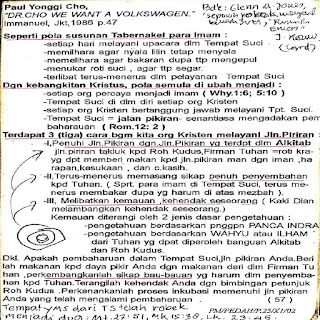 Paul Yonggi Cho,
"DR.CHO WE WANT A VOLKSWAGEN."
Immanuel, Jkt,1986 p.47
Bdk: Glenn
Seperti pola susunan Tabernakel para Imam :
-setiap hari melayani upacara dlm Tempat Suci
-memlhara agar nyala lilin tetap menyala
-memelihara agar bakaran dupa ttp mengepul
-menukar roti suci , agar ttp segar.
-terlibat terus-menerus dlm pelayanan Tempat Suci
Dgn kebangkitan Kristus, pola semula di ubah menjadi :
-setiap org percaya menjadi imam ( Why.1:6; 5:10 )
-Tempat Suci di dlm dri setiap org Kristen
-setiap org Kristen bertanggung jawab melayani Tpt. Suci.
-Tempat Suci = jalan pikiran- senantiasa mengadakan pem
baharuan ( Rom.12: 2 )
Terdapat 3 (tiga) cara bgm kita org Kristen melayani Jln.Pikiran :
-I.Penuhi Jln.Pikiran dgn.Jln.Pikiran yg terdpt dlm Alkitab
jln.pikiran takluk kpd Roh Kudus,Firman Tuhan =roti kra-
yg dpt memberi makan kpd jln.pikiran man dgn iman ,ha
rapan,kesukaan , dan o.kasih.
-II.Terus-menerus memasang sikap penuh penyembahan
kpd Tuhan. ( Sprt. para imam di Tempat Suci, terus me-
nerus membakar dupa yg harum di atas mezbah.)
-III. Melibatkan kemauan ,kehendak seseorang ( Kaki Dian
melambangkan kehendak seseorang.)
Kemauan diterangi oleh 2 jenis dasar pengetahuan :
-pengetahuan berdasarkan pnggpn PANCA INDRA
-pengetahuan berdasarkan WAHYU atau ILHAM
dari Tuhan yg dpat diperoleh bangunan Alkitab
dan Roh Kudus.
Dkl. Apakah pembaharuan dalam Tempat Suci,jln pikiran Anda.Beri
lah makanan kpd daya pikir Anda dgn makanan dari dlm Firman Tu
han ,perkembangkanlah sikap bau-bauan yg harum dlm penyemba-
han kpd Tuhan.Teranglah kehendak Anda dgn bimbingan petunjuk
Roh Kudus .Perkenankanlah proses inkubasi memenuhi jln pikiran
Anda yang telah mengslami pembaharuan. ( 57 )
Tempat yms dari TS telah robek
menjadi dua; Mt.27:51, Mk.15:38, Lk. 23:45